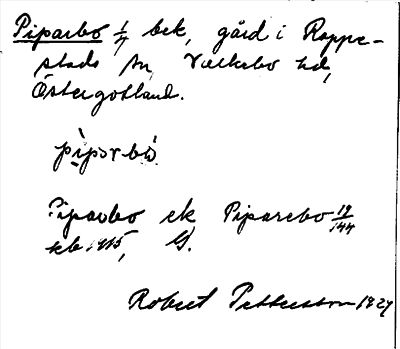 Piparbo 1/4 bek, gård i Rappe-
stads sn, Valkebo hd,
Östergötland.
piparbo
Piparbo ek Piparebo 19/144
kb 1915, G.
Robert Pettersson 1927